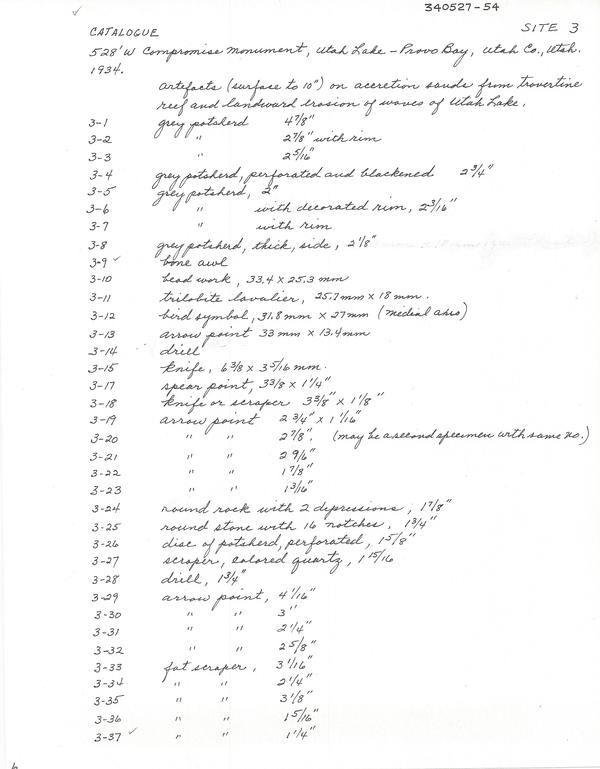 340527-54
CATALOGUE SITE 3
528' W Compromise Monument, Utah Lake - Provo Bay, Utah Co., Utah.
1934.
artefacts (surface to 10") on accretion sands from travertine
reef and landward erosion of waves of Utah Lake.
3-1 grey potsherd 4 7/8"
3-2 " 2 7/8" with rim
3-3 " 2 5/16"
3-4 grey potsherd, perforated and blackened 2 3/4"
3-5 grey potsherd, 2"
3-6 " with decorated rim, 2 3/16"
3-7 " with rim
3-8 grey potsherd, thick, side, 2 1/8"
3-9 ✓ bone awl
3-10 bead work, 33.4 x 25.3 mm
3-11 trilobite lavalier, 25.7 mm x 18 mm.
3-12 bird symbol, 31.8 mm x 27 mm (medial axis)
3-13 arrow point 33 mm x 13.4 mm
3-14 drill
3-15 knife, 6 3/8 x 3 5/16 mm.
3-17 spear point, 3 3/8 x 1 1/4"
3-18 knife or scraper 3 3/8" x 1 1/8"
3-19 arrow point 2 3/4" x 1 1/16"
3-20 " " 2 7/8". (may be a second specimen with same no.)
3-21 " " 2 9/16"
3-22 " " 1 7/8"
3-23 " " 1 3/16"
3-24 round rock with 2 depressions, 1 7/8"
3-25 round stone with 16 notches, 1 3/4"
3-26 disc of potsherd, perforated, 1 5/8"
3-27 scraper, colored quartz, 1 15/16
3-28 drill, 1 3/4"
3-29 arrow point, 4 1/16"
3-30 " " 3"
3-31 " " 2 1/4"
3-32 " " 2 5/8"
3-33 fat scraper, 3 1/16"
3-34 " " 2 1/4"
3-35 " " 3 1/8"
3-36 " " 1 5/16"
3-37 ✓ " " 1 1/4"